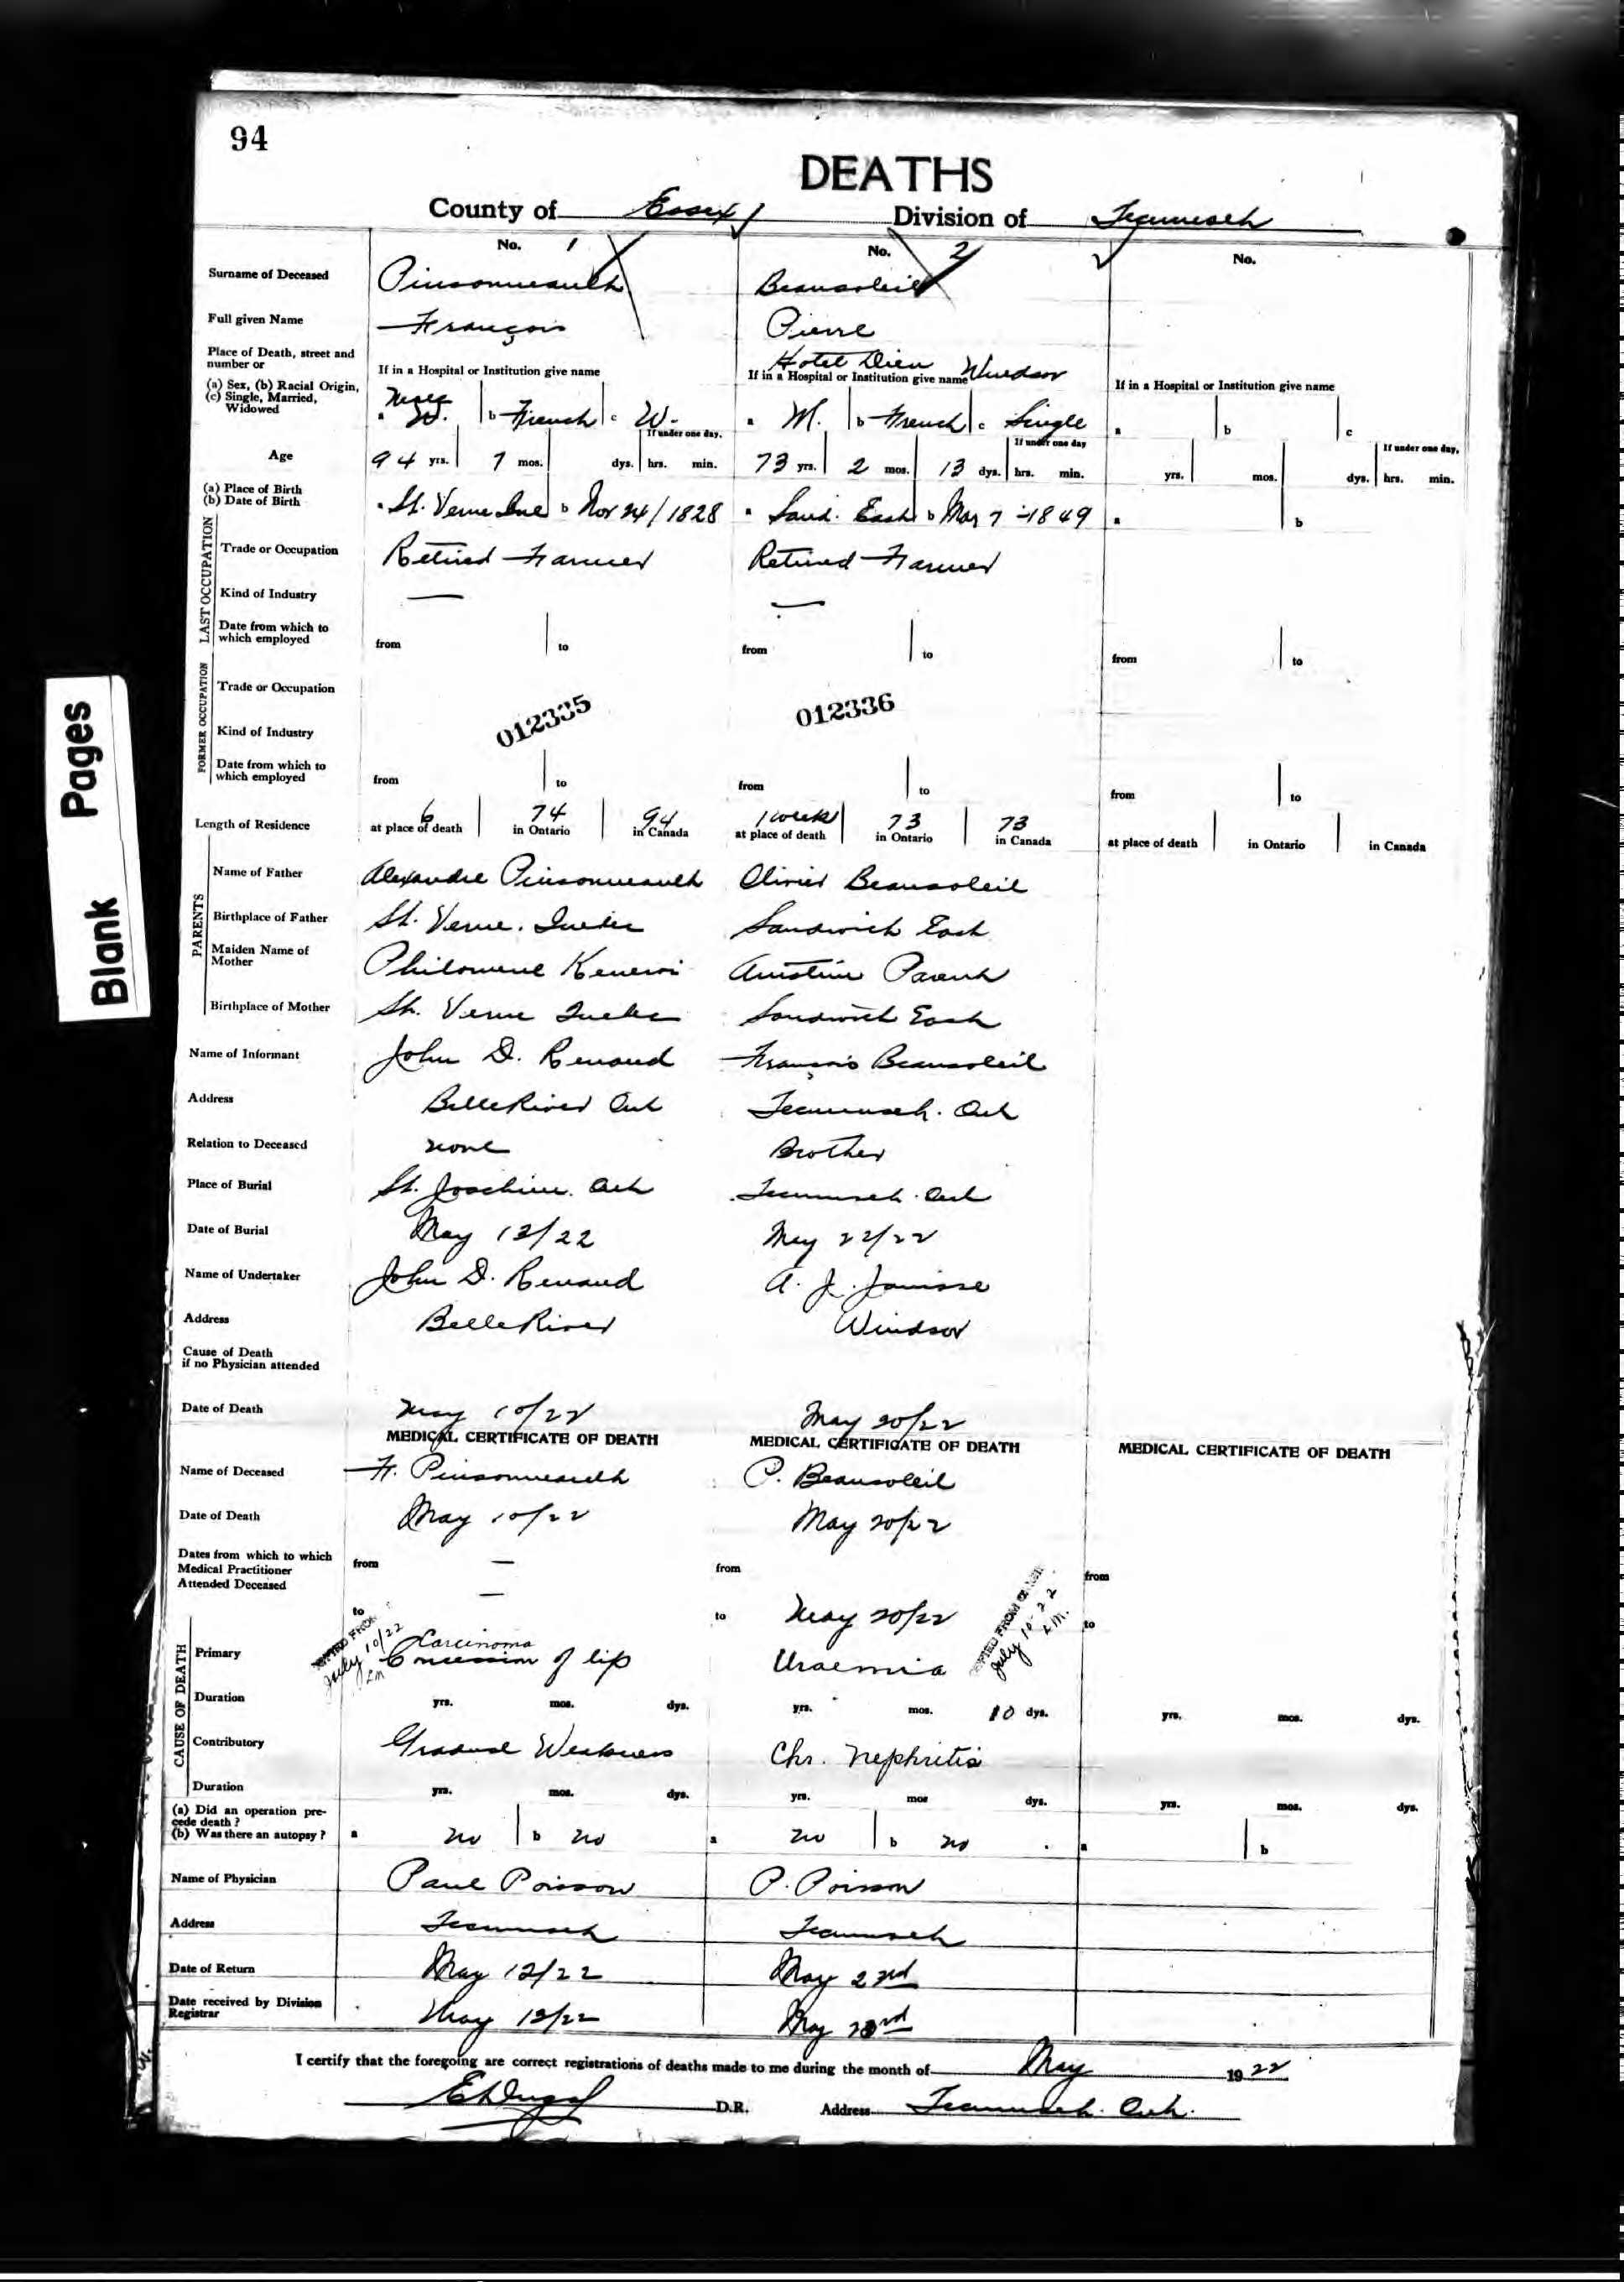 94
DEATHS
County of Essex Division of Tecumseh
No. 1 No. 2 No.
Surname of Deceased Pinsonneault Beausoleil
Full given Name François Pierre
Place of Death, street and number or Hotel Dieu Windsor
If in a Hospital or Institution give name If in a Hospital or Institution give name If in a Hospital or Institution give name
(a) Sex, (b) Racial Origin, (c) Single, Married, Widowed a b French c W. a M. b French c Single a b c
If under one day. If under one day If under one day.
Age 94 yrs. 7 mos. dys. hrs. min. 73 yrs. 2 mos. 13 dys. hrs. min. yrs. mos. dys. hrs. min.
(a) Place of Birth
(b) Date of Birth a St. b Nov 24/1828 a Sand. East b Mar 7 - 1849 a b
LAST OCCUPATION
Trade or Occupation Retired Farmer Retired Farmer
Kind of Industry — —
Date from which to which employed from to from to from to
FORMER OCCUPATION
Trade or Occupation
012335 012336
Kind of Industry
Date from which to which employed from to from to from to
Length of Residence 6 at place of death 74 in Ontario 94 in Canada 1 week at place of death 73 in Ontario 73 in Canada at place of death in Ontario in Canada
PARENTS
Name of Father Alexandre Pinsonneault Olivier Beausoleil
Birthplace of Father St. Verne. Quebec Sandwich East
Maiden Name of Mother Philomene Parent
Birthplace of Mother St. Verne Quebec Sandwich East
Name of Informant John D. Renaud François Beausoleil
Address Belle River Ont Tecumseh. Ont
Relation to Deceased none Brother
Place of Burial St. Joachim. Ont Tecumseh. Ont
Date of Burial May 13/22 May 22/22
Name of Undertaker John D. Renaud A. J. Janisse
Address Belle River Windsor
Cause of Death if no Physician attended
Date of Death May 10/22 May 20/22
MEDICAL CERTIFICATE OF DEATH MEDICAL CERTIFICATE OF DEATH MEDICAL CERTIFICATE OF DEATH
Name of Deceased F. Pinsonneault P. Beausoleil
Date of Death May 10/22 May 20/22
Dates from which to which Medical Practitioner Attended Deceased from — from from
— to to May 20/22 to
July 10/22 LM July 10-22 LM.
CAUSE OF DEATH
Carcinoma
Primary of lip Uraemia
Duration yrs. mos. dys. yrs. mos. 10 dys. yrs. mos. dys.
Contributory Gradual Weakness Chr. Nephritis
Duration yrs. mos. dys. yrs. mos dys. yrs. mos. dys.
(a) Did an operation precede death?
(b) Was there an autopsy? a no b no a no b no a b
Name of Physician Paul Poisson P. Poisson
Address Tecumseh Tecumseh
Date of Return May 12/22 May 23rd
Date received by Division Registrar May 12/22 May 23rd
I certify that the foregoing are correct registrations of deaths made to me during the month of May 1922
D.R. Address Tecumseh. Ont.
Blank Pages